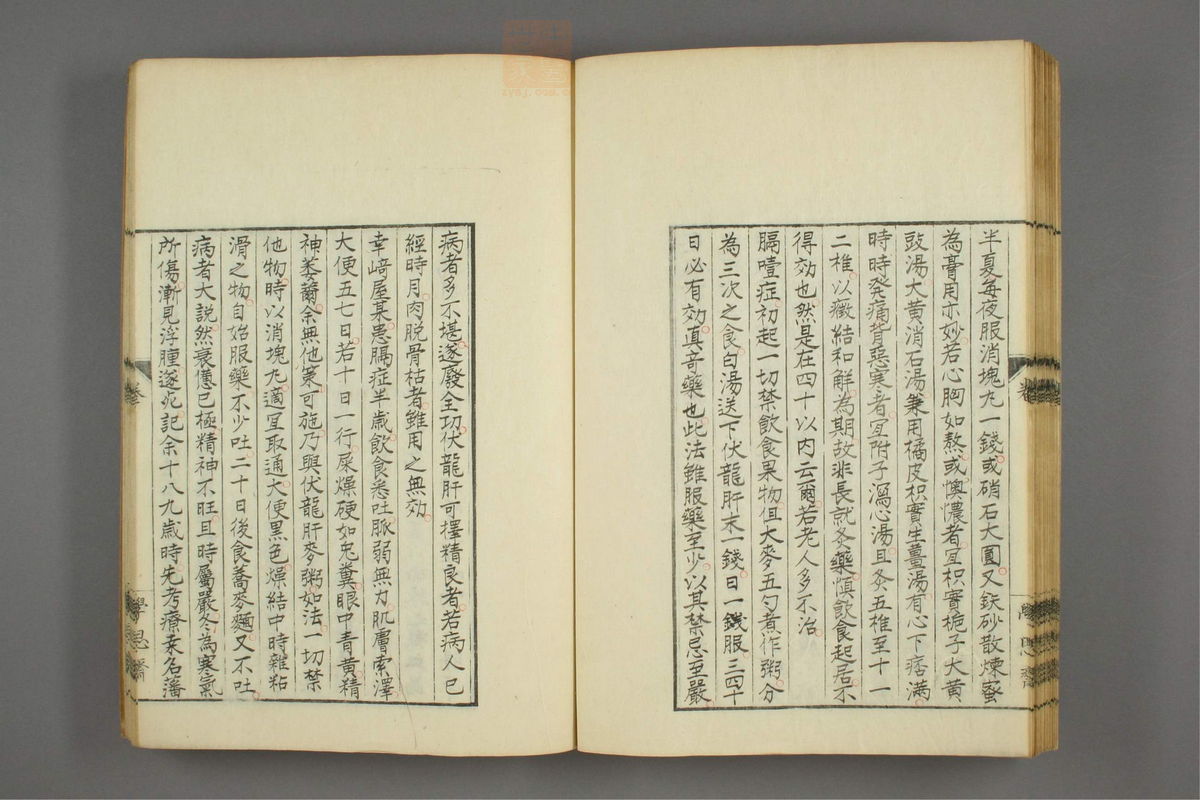 半夏每夜服消塊丸一錢或硝石大圓又鉄砂散煉蜜
為膏用亦妙若心胸如熬或懊憹者宜枳實梔子大黃
豉湯大黃消石湯兼用橘皮枳實生薑湯有心下痞滿
時時発痛背惡寒者宜附子瀉心湯且灸五椎至十一
二椎以癥結和解為期故非長就灸藥慎飲食起居不
得効也然是在四十以內云爾若老人多不治
膈噎症初起一切禁飲食果物但大麥五勺煮作粥分
為三次之食白湯送下伏龍肝末一錢日一錢服三四十
日必有効真奇藥也此法雖服藥至少以其禁忌至嚴
病者多不堪遂廢全功伏龍肝可擇精良者若病人已
經時月肉脱骨枯者雖用之無効
幸﨑屋某患膈症半歲飲食悉吐脈弱無力肌膚索澤
大便五七日若十日一行屎燥硬如兎糞眼中青黃精
神萎薾余無他策可施乃與伏龍肝麥粥如法一切禁
他物時以消塊丸適宜取通大便黒色燥結中時雜粘
滑之物自始服藥不少吐二十日後食蕎麥麵又不吐
病者大説然衰憊已極精神不旺且時屬嚴冬為寒氣
所傷漸見浮腫遂死記余十八九歲時先考療桑名藩